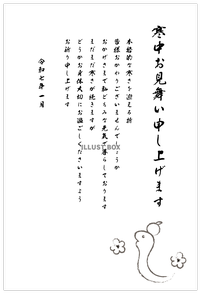 寒中お見舞い申し上げます
本格的な寒さを迎える候
皆様おかわりございませんでしょうか
おかげさまで私どもみな元気で暮らしております
まだまだ寒さが続きますが
どうかお身体大切にお過ごしくださいますよう
お祈り申し上げます
令和七年 一月
ILLUST BOX